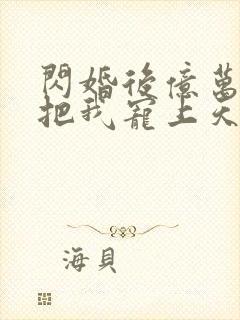 閃婚後億萬
把我寵上天
海貝